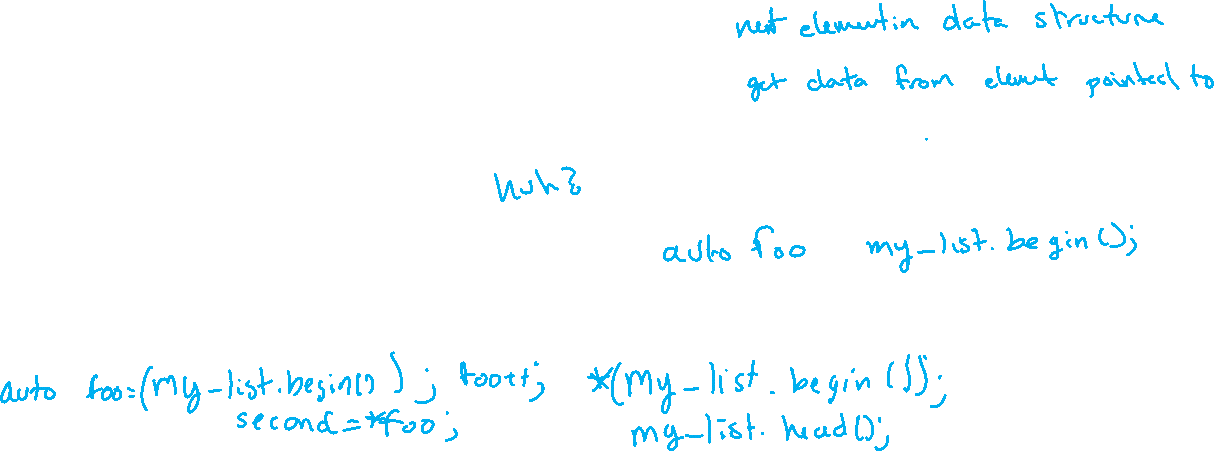 next element in data structure
get data from element pointed to
huh?
auto foo my_list.begin();
auto foo=(my_list.begin()); foo++; *(my_list.begin());
second=*foo; my_list.head();